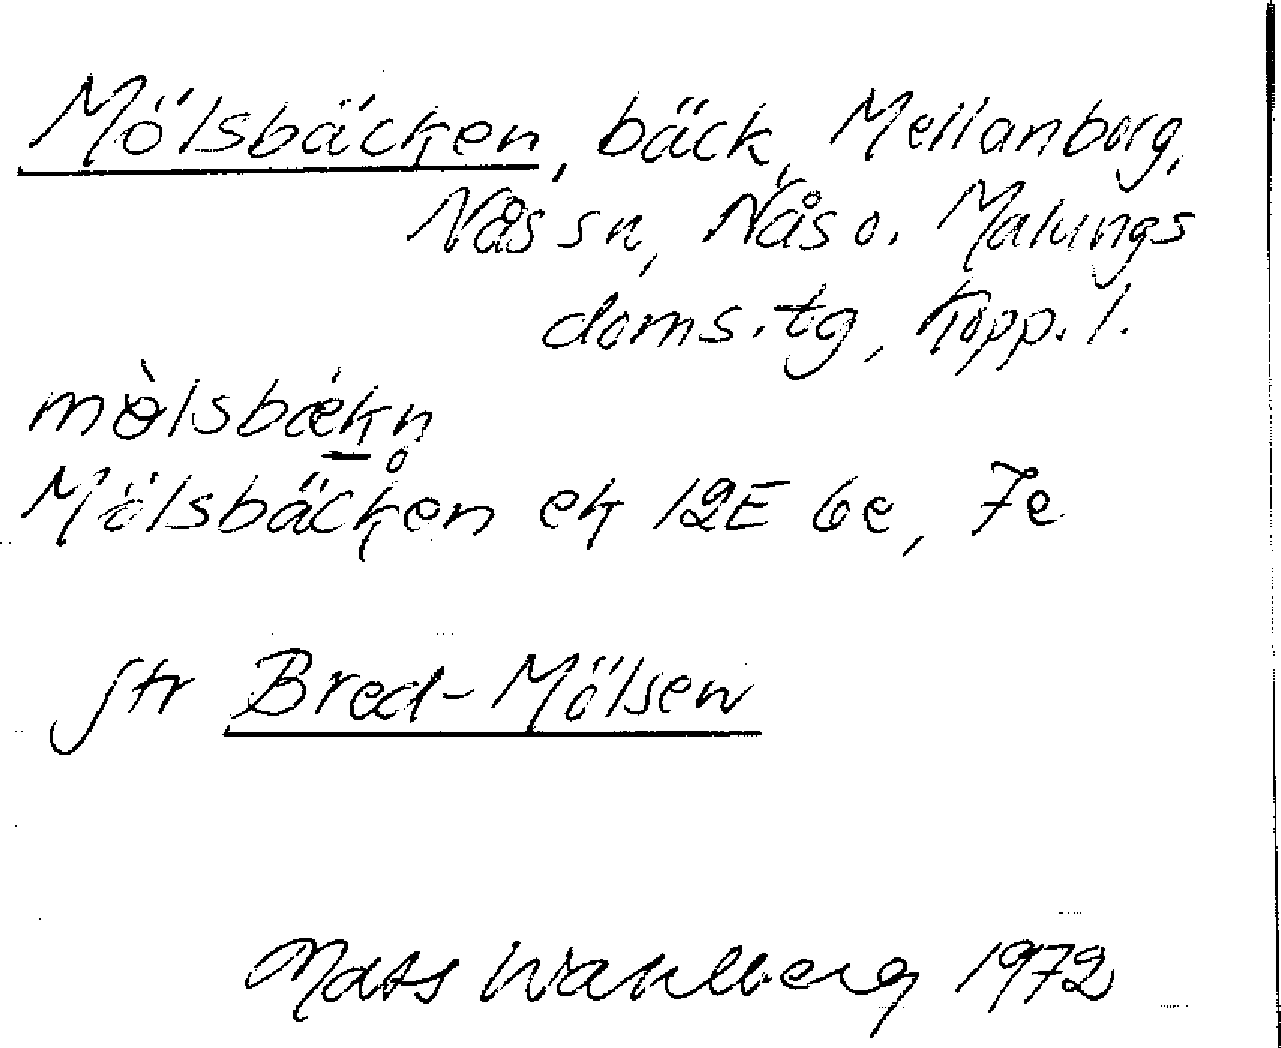 Mölsbäcken, bäck, Mellanborg,
Nås sn, Nås o. Malungs
doms.tg, Kopp. l.
mə̀lsbæ̀kn̥
Mölsbäcken ek 12E 6e, 7e
Jfr Bred-Mölsen
Mats Wahlberg 1972